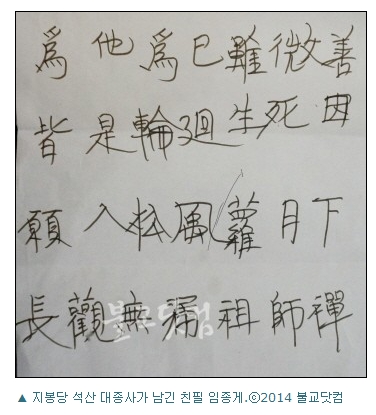 爲他爲己雖微善
皆是輪廻生死因
願入松風蘿月下
長觀無漏祖師禪
불교닷컴
▲ 지봉당 석산 대종사가 남긴 친필 임종게.©2014 불교닷컴